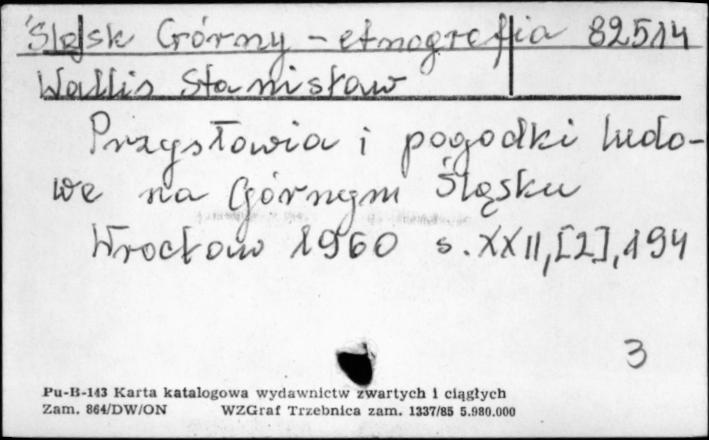 Śląsk Górny - etnografia 82514
Wallis Stanisław
Przysłowia i pogodki ludo-
we na Górnym Śląsku
Wrocław 1960 s. XXII, [2], 194
3
Pu-B-143 Karta katalogowa wydawnictw zwartych i ciągłych
Zam. 864/DW/ON WZGraf Trzebnica zam. 1337/85 5.980.000